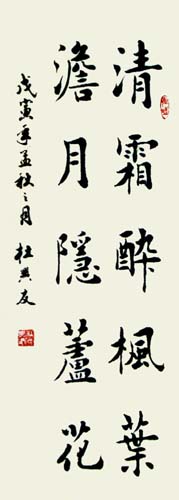 清霜醉楓葉
澹月隱蘆花
戊寅年孟秋之月 杜興友